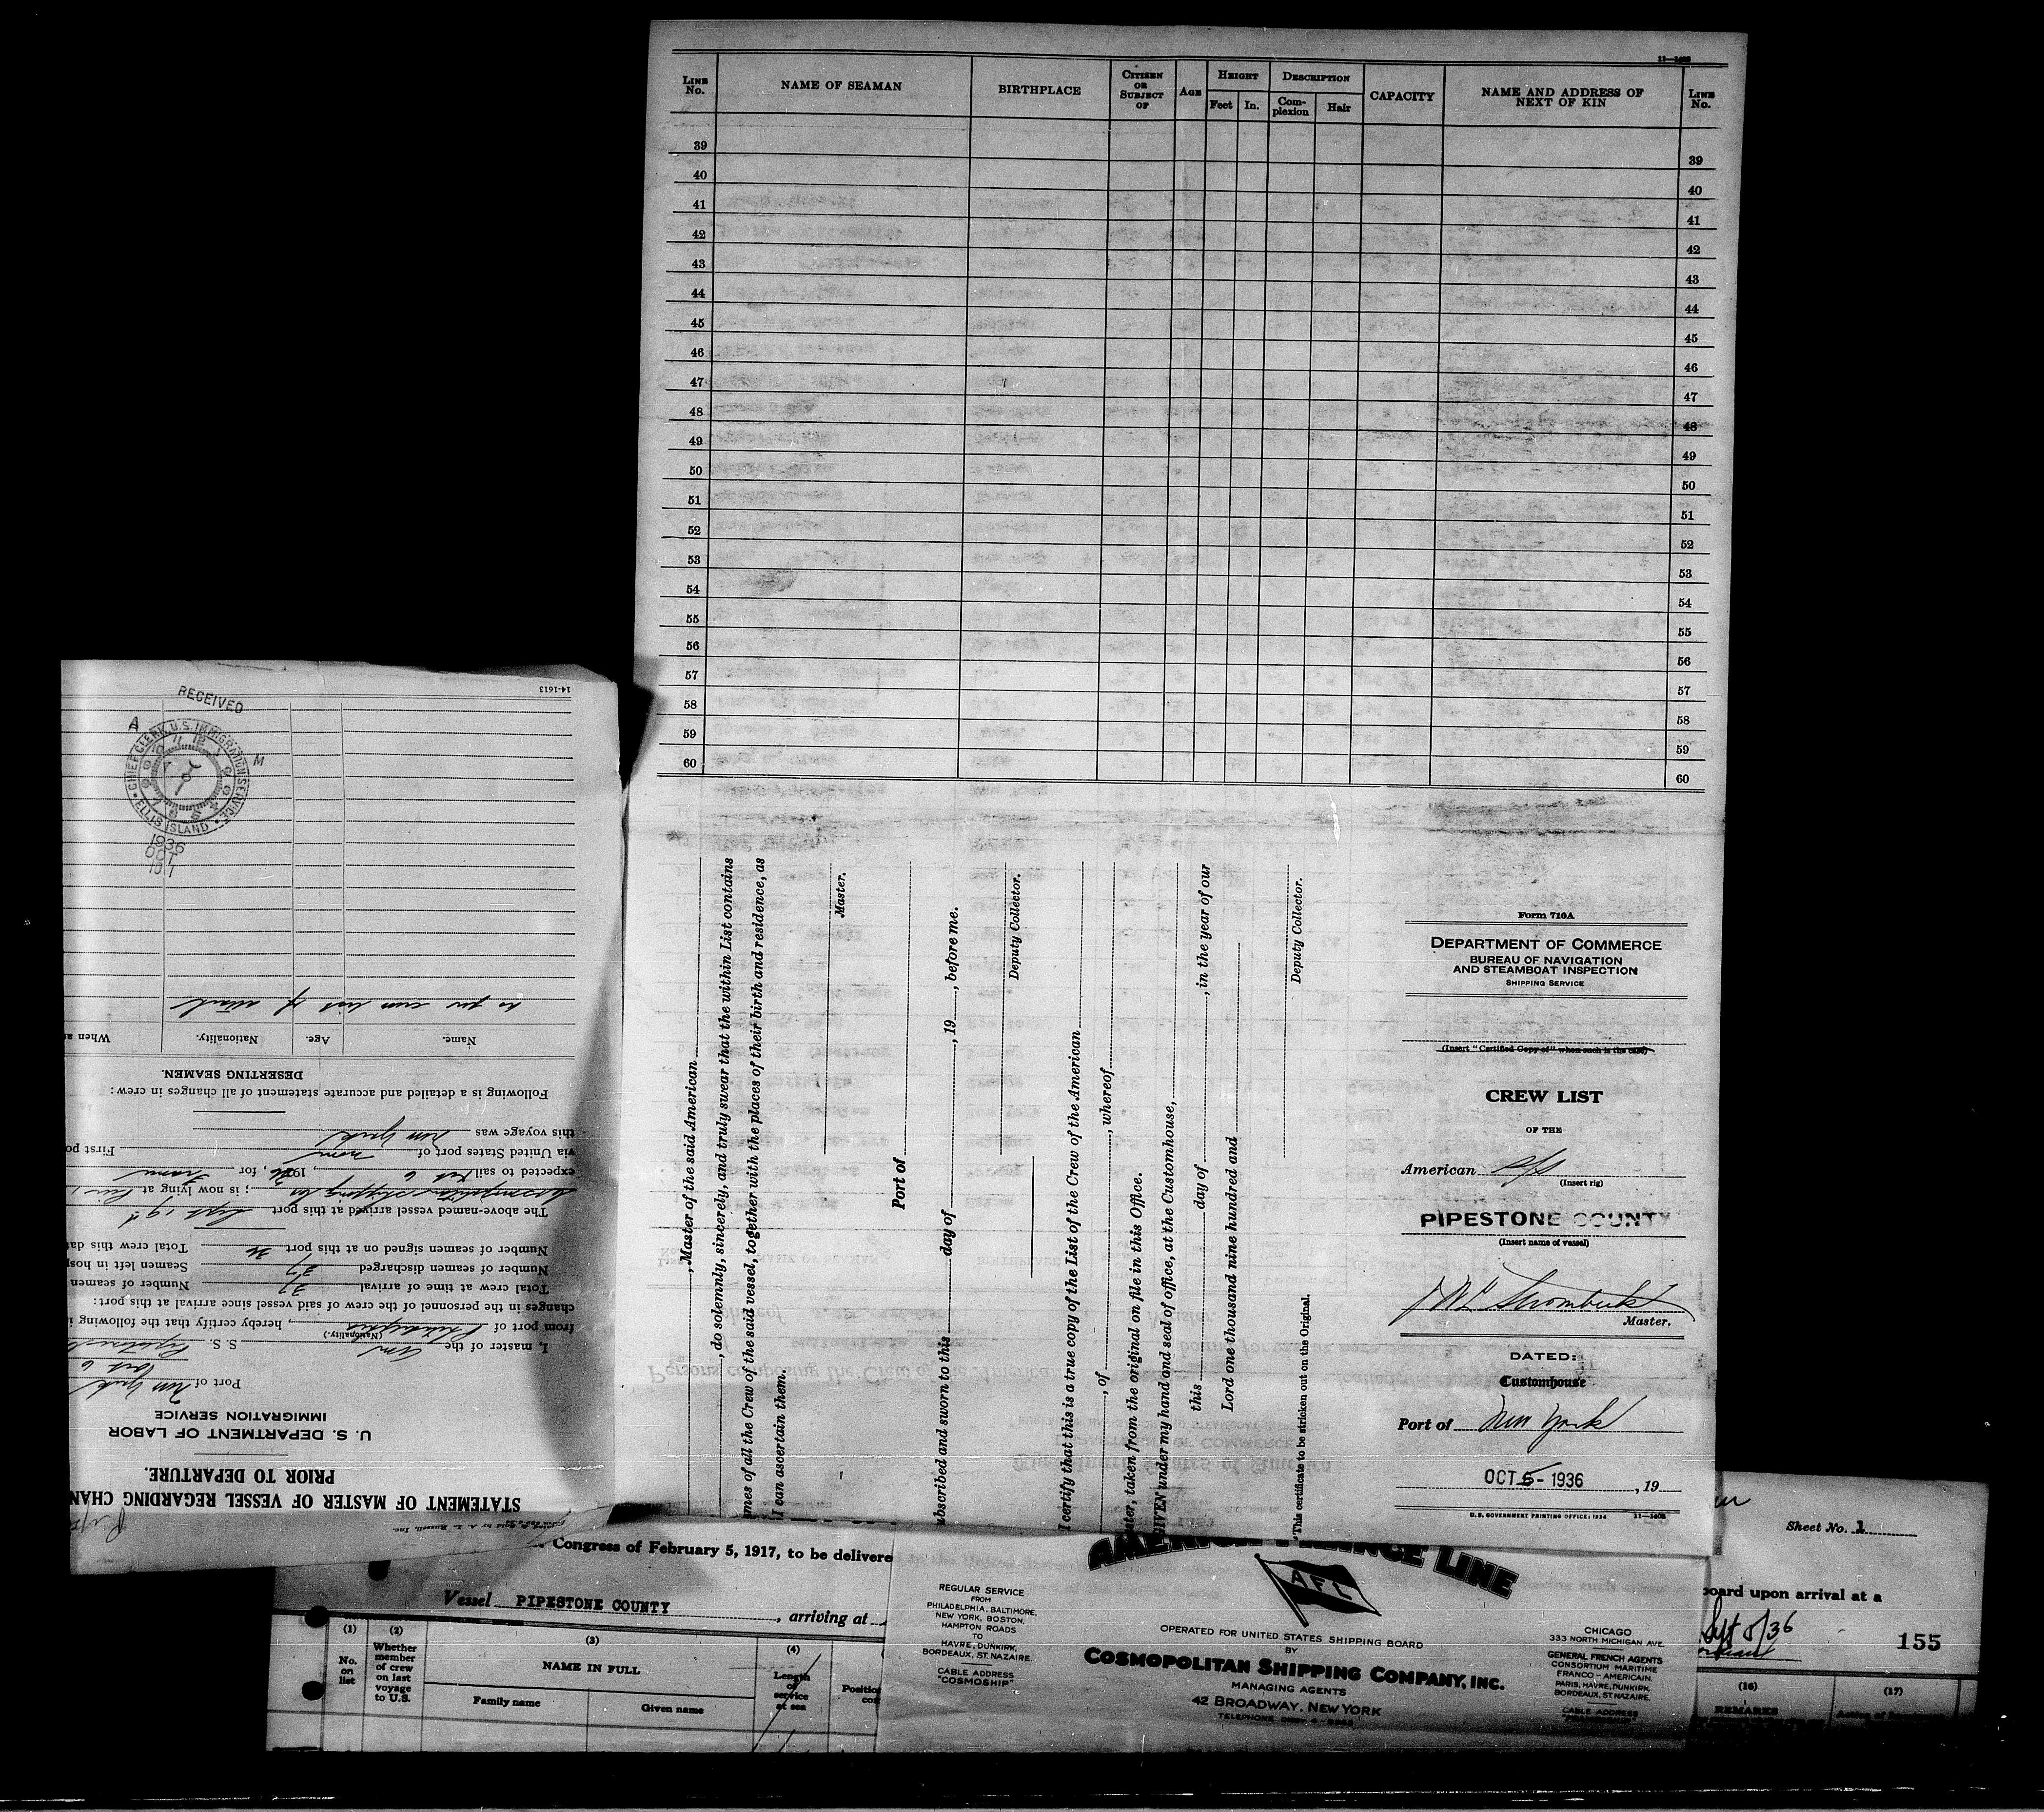 11—1408
LINE No.
NAME OF SEAMAN
BIRTHPLACE
CITIZEN OR SUBJECT OF
AGE
HEIGHT
Feet
In.
DESCRIPTION
Complexion
Hair
CAPACITY
NAME AND ADDRESS OF NEXT OF KIN
LINE No.
39 39
40 40
41 41
42 42
43 43
44 44
45 45
46 46
47 47
48 48
49 49
50 50
51 51
52 52
53 53
54 54
55 55
56 56
57 57
58 58
59 59
60 60
, Master of the said American
, do solemnly, sincerely, and truly swear that the within List contains
mes of all the Crew of the said vessel, together with the places of their birth and residence, as
I can ascertain them.
Master.
Port of
ubscribed and sworn to this day of , 19 , before me.
Deputy Collector.
I certify that this is a true copy of the List of the Crew of the American
, of , whereof
ster, taken from the original on file in this Office.
GIVEN under my hand and seal of office, at the Customhouse,
this day of , in the year of our
Lord one thousand nine hundred and
Deputy Collector.
*This certificate to be stricken out on the Original.
Form 710A
DEPARTMENT OF COMMERCE
BUREAU OF NAVIGATION
AND STEAMBOAT INSPECTION
SHIPPING SERVICE
(Insert "Certified Copy of" when such is the case)
CREW LIST
OF THE
American s/s
(Insert rig)
PIPESTONE COUNTY
(Insert name of vessel)
Master.
DATED:
Customhouse
Port of New York
OCT 5 - 1936 , 19
U.S. GOVERNMENT PRINTING OFFICE: 1934 11—1408
STATEMENT OF MASTER OF VESSEL REGARDING CHAN
PRIOR TO DEPARTURE.
U. S. DEPARTMENT OF LABOR
IMMIGRATION SERVICE
Port of New York
Oct 6
I, master of the Am S. S. Pipestone
(Nationality.)
from port of , hereby certify that the following i
changes in the personnel of the crew of said vessel since arrival at this port:
Total crew at time of arrival 37 Number of seamen
Number of seamen discharged 37 Seamen left in hos
Number of seamen signed on at this port 36 Total crew this dat
The above-named vessel arrived at this port Sept 19th
Cosmopolitan Shipping Co ; is now lying at Pier
expected to sail Oct 6 , 1936, for France
via United States port of none First po
this voyage was New York
Following is a detailed and accurate statement of all changes in crew:
DESERTING SEAMEN.
Name. Age. Nationality. When a
as per crew list of attach
14-1613
RECEIVED
A M
CHIEF CLERK, U.S. IMMIGRATION SERVICE
ELLIS ISLAND
1936
OCT
Congress of February 5, 1917, to be delivere
Vessel PIPESTONE COUNTY , arriving at
(1) No. on list
(2) Whether member of crew on last voyage to U.S.
(3) NAME IN FULL
Family name
Given name
(4) Length of service at sea
AMERICA FRANCE LINE
AFL
REGULAR SERVICE
FROM
PHILADELPHIA, BALTIMORE,
NEW YORK, BOSTON,
HAMPTON ROADS
TO
HAVRE, DUNKIRK,
BORDEAUX, ST. NAZAIRE.
CABLE ADDRESS
"COSMOSHIP"
OPERATED FOR UNITED STATES SHIPPING BOARD
BY
COSMOPOLITAN SHIPPING COMPANY, INC.
MANAGING AGENTS
42 BROADWAY, NEW YORK
CHICAGO
333 NORTH MICHIGAN AVE.
GENERAL FRENCH AGENTS
CONSORTIUM MARITIME
FRANCO-AMERICAIN.
PARIS, HAVRE, DUNKIRK,
BORDEAUX, ST. NAZAIRE.
CABLE ADDRESS
Sheet No. 1
board upon arrival at a
155
(16)
REMARKS
(17)